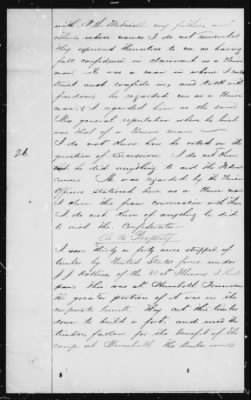 with my father and
others whose names I do not remember
They expressed themselves to me as having
full confidence in claimant as a Union
man. He was a man in whom I
trust most confiding and
freedom. he regarded me as a Union
man & I regarded him as the same
His general reputation where he lived
was that of a Union man
I do not know how he voted on the
question of Secession. I do not know
26
that he did anything to aid the Federal
cause. He was regarded by the Union
Officers stationed here as a Union man
I know this from conversation with them
I do not know of anything he did
to aid the Confederates
As to Property
I saw thirty or forty acres stripped of
timber by United States forces under
J. J. of the of Illinois
this was at Humboldt Tennessee
the greater portion of it was in the
corporate limits. They cut this timber
down to build a fort, and used the
timber fallen for the benefit of the
camp at Humboldt the timber